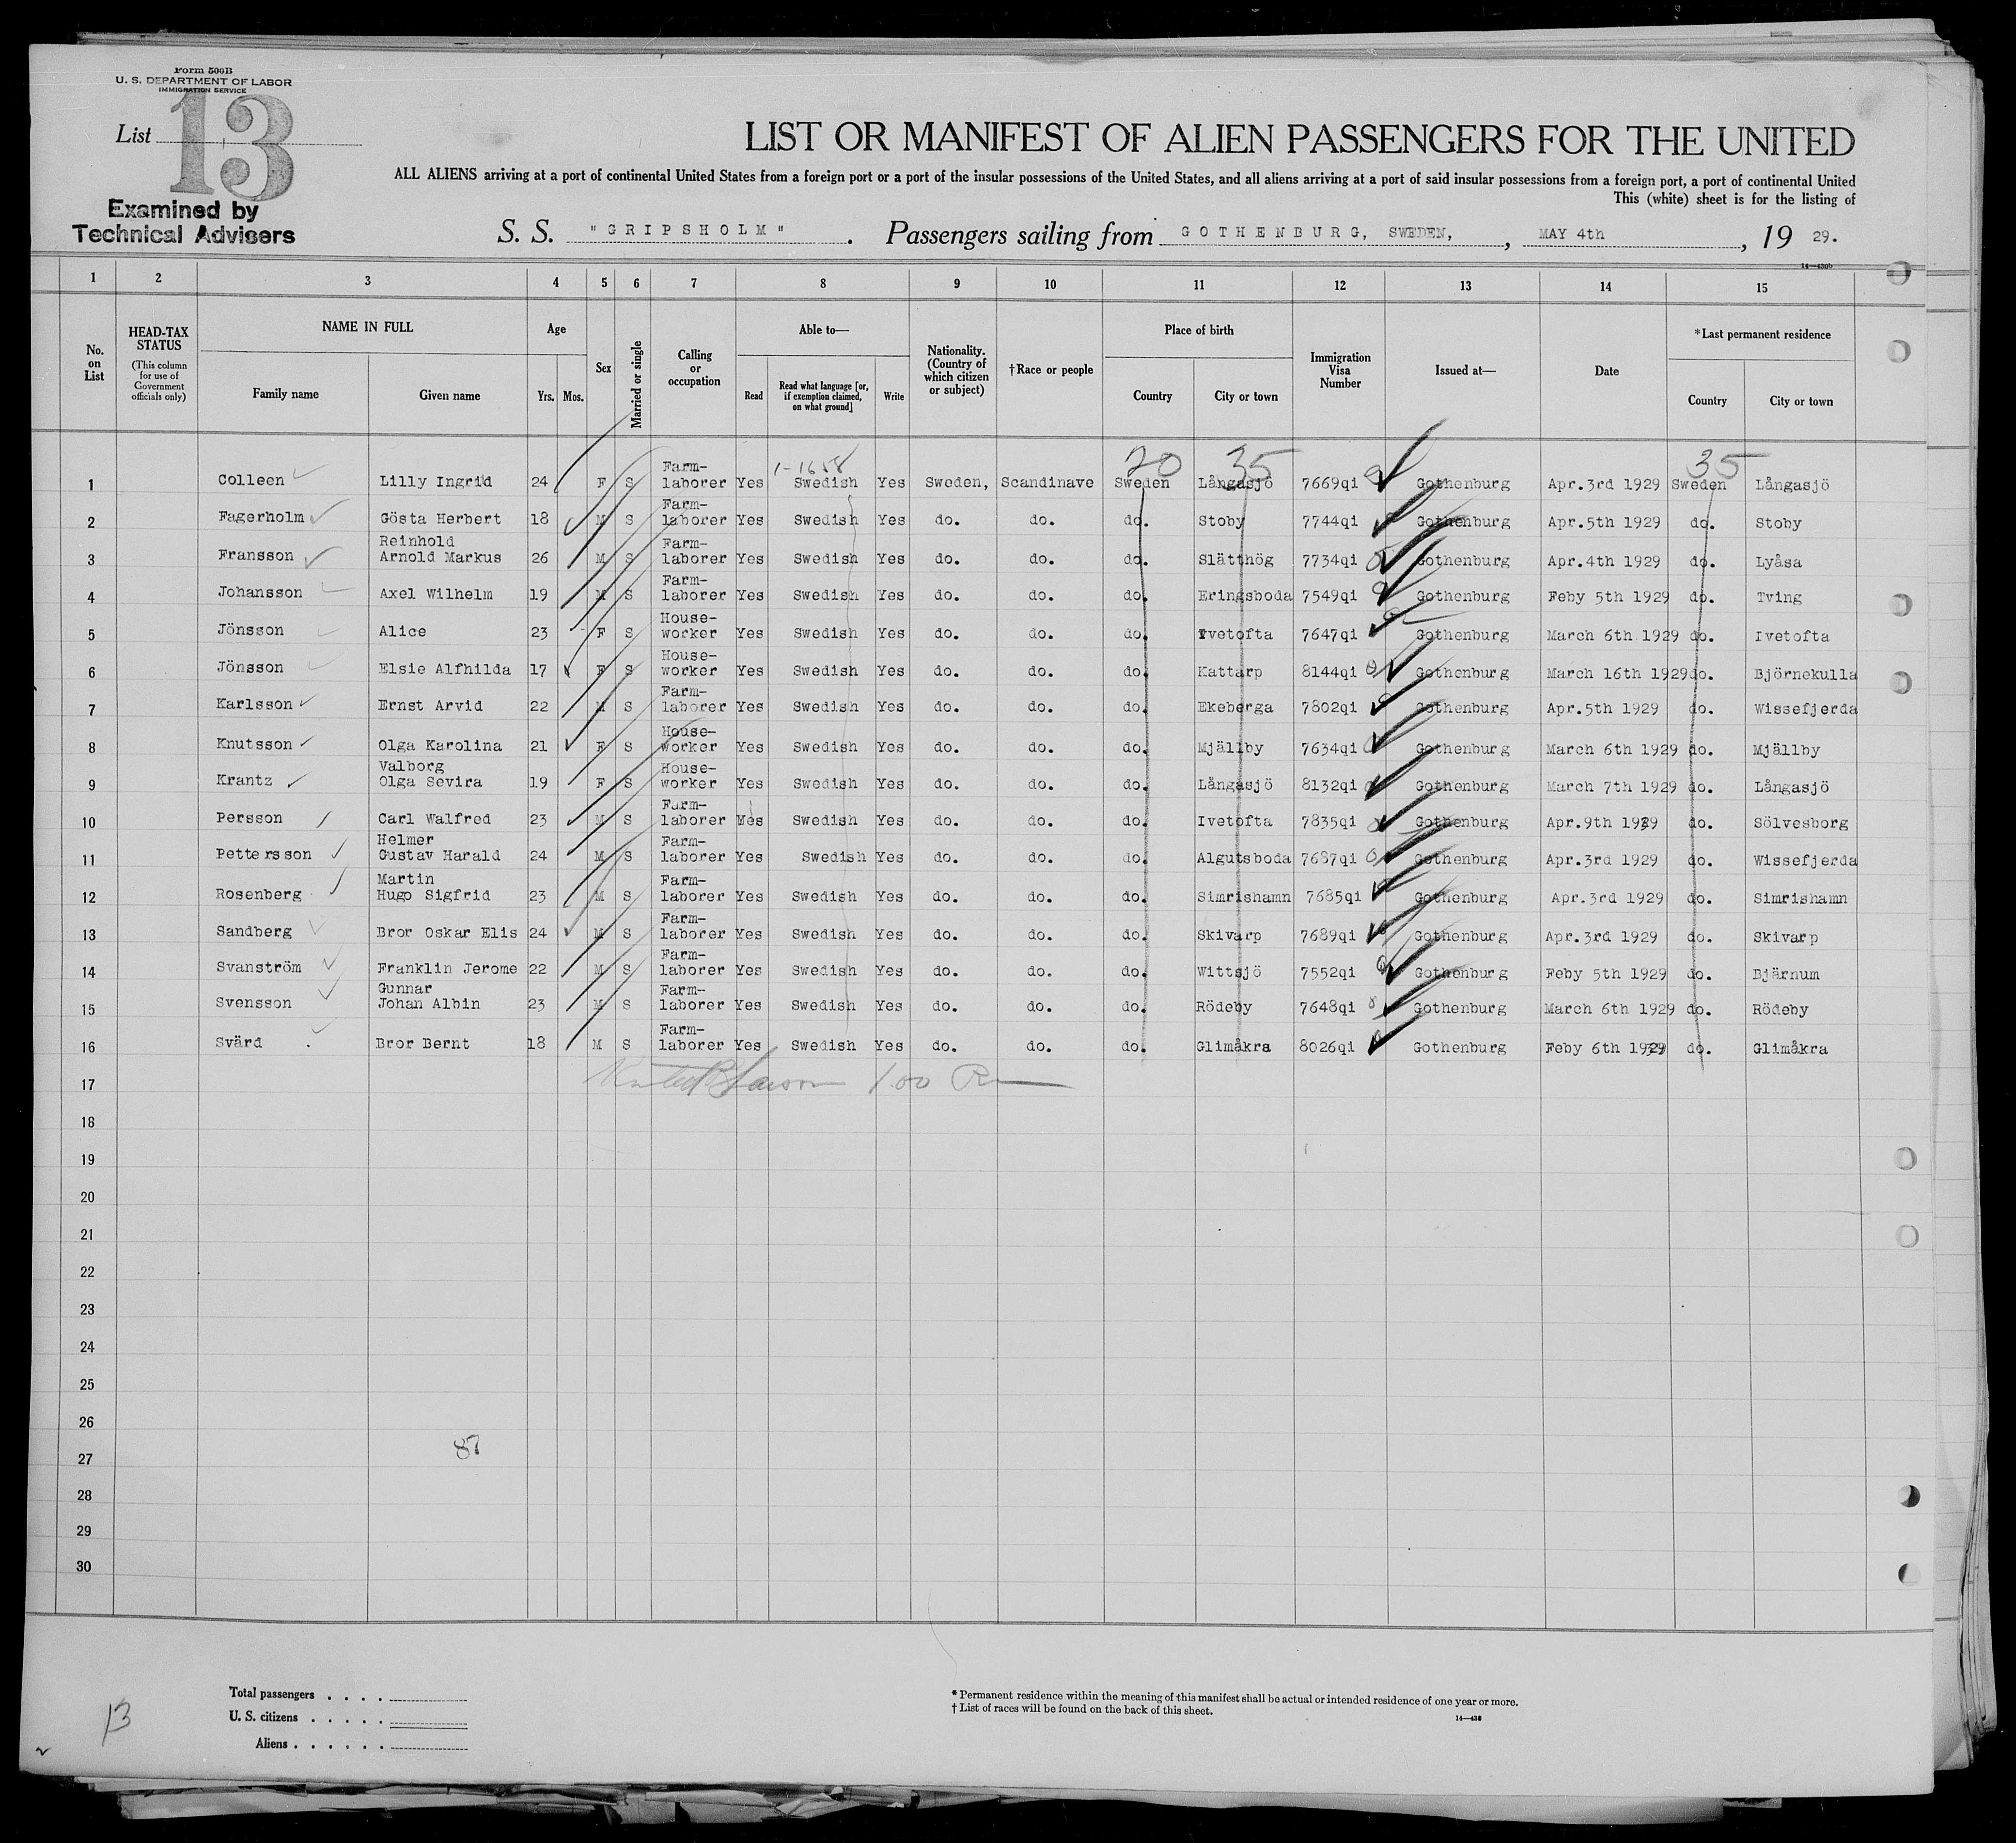 Form 500B
U. S. DEPARTMENT OF LABOR
IMMIGRATION SERVICE
List 13
Examined by
Technical Advisers
LIST OR MANIFEST OF ALIEN PASSENGERS FOR THE UNITED
ALL ALIENS arriving at a port of continental United States from a foreign port or a port of the insular possessions of the United States, and all aliens arriving at a port of said insular possessions from a foreign port, a port of continental United
This (white) sheet is for the listing of
S. S. "GRIPSHOLM". Passengers sailing from GOTHENBURG, SWEDEN, , MAY 4th , 19 29.
1 2 3 4 5 6 7 8 9 10 11 12 13 14 15
No. on List
HEAD-TAX STATUS
(This column for use of Government officials only)
NAME IN FULL
Family name Given name
Age
Yrs. Mos.
Sex
Married or single
Calling or occupation
Able to—
Read
Read what language [or, if exemption claimed, on what ground]
Write
Nationality. (Country of which citizen or subject)
†Race or people
Place of birth
Country City or town
Immigration Visa Number
Issued at—
Date
*Last permanent residence
Country City or town
1-1658 20 35 35
1 Colleen Lilly Ingrid 24 F S Farm-laborer Yes Swedish Yes Sweden, Scandinave Sweden Långasjö 7669qi Gothenburg Apr.3rd 1929 Sweden Långasjö
2 Fagerholm Gösta Herbert 18 M S Farm-laborer Yes Swedish Yes do. do. do. Stoby 7744qi Gothenburg Apr.5th 1929 do. Stoby
3 Fransson Reinhold Arnold Markus 26 M S Farm-laborer Yes Swedish Yes do. do. do. Slätthög 7734qi Gothenburg Apr.4th 1929 do. Lyåsa
4 Johansson Axel Wilhelm 19 M S Farm-laborer Yes Swedish Yes do. do. do. Eringsboda 7549qi Gothenburg Feby 5th 1929 do. Tving
5 Jönsson Alice 23 F S House-worker Yes Swedish Yes do. do. do. Ivetofta 7647qi Gothenburg March 6th 1929 do. Ivetofta
6 Jönsson Elsie Alfhilda 17 F S House-worker Yes Swedish Yes do. do. do. Kattarp 8144qi Gothenburg March 16th 1929 do. Björnekulla
7 Karlsson Ernst Arvid 22 M S Farm-laborer Yes Swedish Yes do. do. do. Ekeberga 7802qi Gothenburg Apr.5th 1929 do. Wissefjerda
8 Knutsson Olga Karolina 21 F S House-worker Yes Swedish Yes do. do. do. Mjällby 7634qi Gothenburg March 6th 1929 do. Mjällby
9 Krantz Valborg Olga Sevira 19 F S House-worker Yes Swedish Yes do. do. do. Långasjö 8132qi Gothenburg March 7th 1929 do. Långasjö
10 Persson Carl Walfred 23 M S Farm-laborer Yes Swedish Yes do. do. do. Ivetofta 7835qi Gothenburg Apr.9th 1929 do. Sölvesborg
11 Pettersson Helmer Gustav Harald 24 M S Farm-laborer Yes Swedish Yes do. do. do. Algutsboda 7687qi Gothenburg Apr.3rd 1929 do. Wissefjerda
12 Rosenberg Martin Hugo Sigfrid 23 M S Farm-laborer Yes Swedish Yes do. do. do. Simrishamn 7685qi Gothenburg Apr.3rd 1929 do. Simrishamn
13 Sandberg Bror Oskar Elis 24 M S Farm-laborer Yes Swedish Yes do. do. do. Skivarp 7689qi Gothenburg Apr.3rd 1929 do. Skivarp
14 Svanström Franklin Jerome 22 M S Farm-laborer Yes Swedish Yes do. do. do. Wittsjö 7552qi Gothenburg Feby 5th 1929 do. Bjärnum
15 Svensson Gunnar Johan Albin 23 M S Farm-laborer Yes Swedish Yes do. do. do. Rödeby 7648qi Gothenburg March 6th 1929 do. Rödeby
16 Svärd Bror Bernt 18 M S Farm-laborer Yes Swedish Yes do. do. do. Glimåkra 8026qi Gothenburg Feby 6th 1929 do. Glimåkra
17
18
19
20
21
22
23
24
25
26
27 87
28
29
30
Total passengers
U. S. citizens
Aliens
13
* Permanent residence within the meaning of this manifest shall be actual or intended residence of one year or more.
† List of races will be found on the back of this sheet.